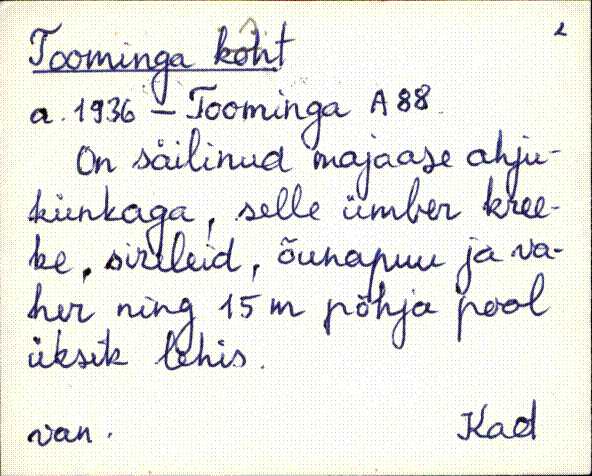 2
Toominga koht
a. 1936 – Toominga A 88
On säilinud majaase ahju-
künkaga, selle ümber kree-
ke, sireleid, õunapuu ja va-
her ning 15 m põhja pool
üksik lehis.
van. Kad